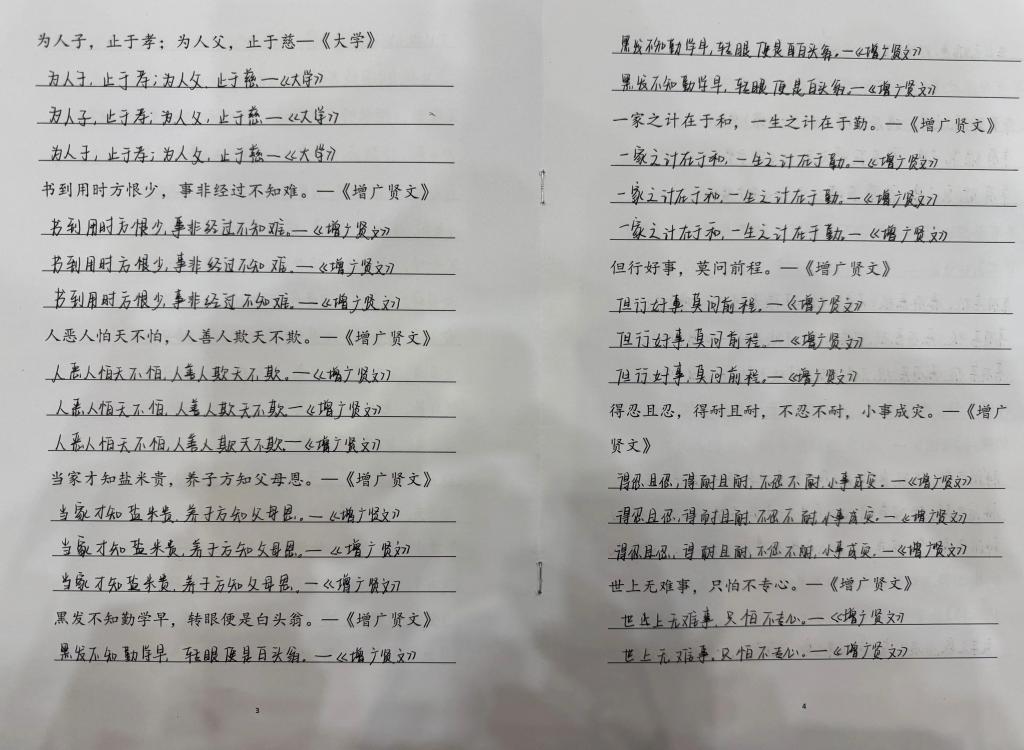 为人子，止于孝；为人父，止于慈—《大学》
为人子，止于孝；为人父，止于慈—《大学》
为人子，止于孝；为人父，止于慈—《大学》
为人子，止于孝；为人父，止于慈—《大学》
书到用时方恨少，事非经过不知难。—《增广贤文》
书到用时方恨少，事非经过不知难。—《增广贤文》
书到用时方恨少，事非经过不知难。—《增广贤文》
书到用时方恨少，事非经过不知难。—《增广贤文》
人恶人怕天不怕，人善人欺天不欺。—《增广贤文》
人恶人怕天不怕，人善人欺天不欺。—《增广贤文》
人恶人怕天不怕，人善人欺天不欺—《增广贤文》
人恶人怕天不怕，人善人欺天不欺。—《增广贤文》
当家才知盐米贵，养子方知父母恩。—《增广贤文》
当家才知盐米贵，养子方知父母恩。—《增广贤文》
当家才知盐米贵，养子方知父母恩。—《增广贤文》
当家才知盐米贵，养子方知父母恩。—《增广贤文》
黑发不知勤学早，转眼便是白头翁。—《增广贤文》
黑发不知勤学早 转眼便是白头翁。—《增广贤文》
3
黑发不知勤学早，转眼便是白头翁。—《增广贤文》
黑发不知勤学早，转眼便是白头翁。—《增广贤文》
一家之计在于和，一生之计在于勤。—《增广贤文》
一家之计在于和，一生之计在于勤。—《增广贤文》
一家之计在于和，一生之计在于勤。—《增广贤文》
一家之计在于和，一生之计在于勤。—《增广贤文》
但行好事，莫问前程。—《增广贤文》
但行好事，莫问前程。—《增广贤文》
但行好事，莫问前程。—《增广贤文》
但行好事，莫问前程。—《增广贤文》
得忍且忍，得耐且耐，不忍不耐，小事成灾。—《增广
贤文》
得忍且忍，得耐且耐，不忍不耐，小事成灾。—《增广贤文》
得忍且忍，得耐且耐，不忍不耐，小事成灾。—《增广贤文》
得忍且忍，得耐且耐，不忍不耐，小事成灾。—《增广贤文》
世上无难事，只怕不专心。—《增广贤文》
世上无难事，只怕不专心。—《增广贤文》
世上无难事，只怕不专心。—《增广贤文》
4